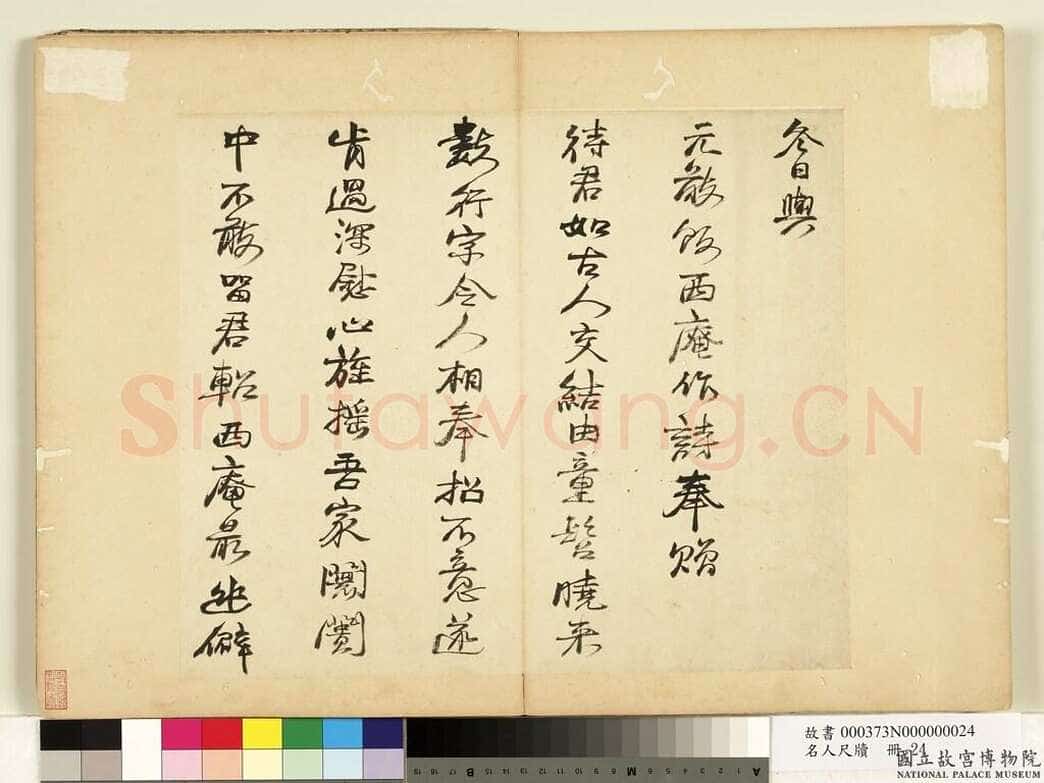 冬日與
元敬飯西庵作詩奉贈
待君如古人交結由童髫曉來
數行字令人相奉招不意遂
肯過深慰心旌搖吾家闤闠
中不敢留君軺西庵最幽僻
Shufawang.CN
故書 000373N000000024
名人尺牘 冊 24
國立故宮博物院
NATIONAL PALACE MUSEUM